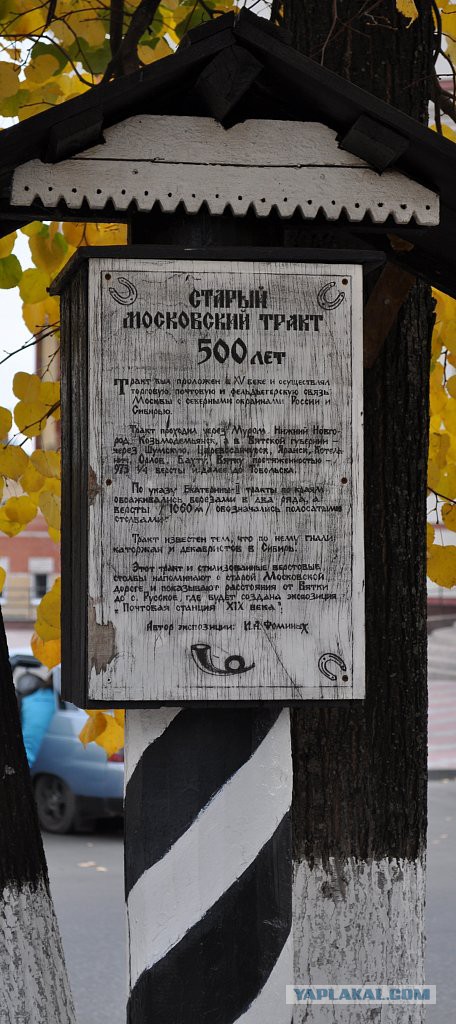 СТАРЫЙ
МОСКОВСКИЙ ТРАКТ
500 ЛЕТ
Тракт был проложен в XV веке и осуществлял
торговую, почтовую и фельдъегерскую связь
Москвы с северными окраинами России и
Сибирью.
Тракт проходил через Муром, Нижний Новго-
род, Козьмодемьянск, а в Вятской губернии -
через Шумскую, Царевосанчурск, Яранск, Котель
нич, Орлов, Бахту, Вятку протяженностью -
973 1/4 версты и далее до Тобольска.
По указу Екатерины-II тракты по краям
обсаживались березами в два ряда, а
версты /1060 м/ обозначались полосатыми
столбами.
Тракт известен тем, что по нему гнали
каторжан и декабристов в Сибирь.
Этот тракт и стилизованные верстовые
столбы напоминают о старой Московской
дороге и показывают расстояния от Вятки
до с. Русское, где будет создана экспозиция
"Почтовая станция XIX века".
Автор экспозиции: И.А. Фоминых
YAPLAKAL.COM